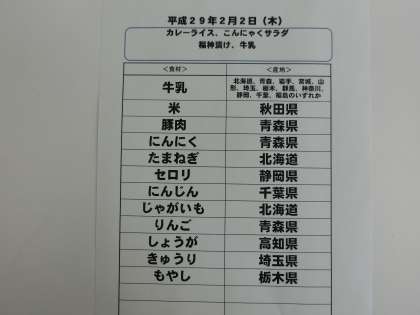 平成29年2月2日（木）
カレーライス、こんにゃくサラダ
福神漬け、牛乳
＜食材＞ ＜産地＞
牛乳 北海道、青森、岩手、宮城、山
形、埼玉、栃木、群馬、神奈川、
静岡、千葉、福島のいずれか
米 秋田県
豚肉 青森県
にんにく 青森県
たまねぎ 北海道
セロリ 静岡県
にんじん 千葉県
じゃがいも 北海道
りんご 青森県
しょうが 高知県
きゅうり 埼玉県
もやし 栃木県